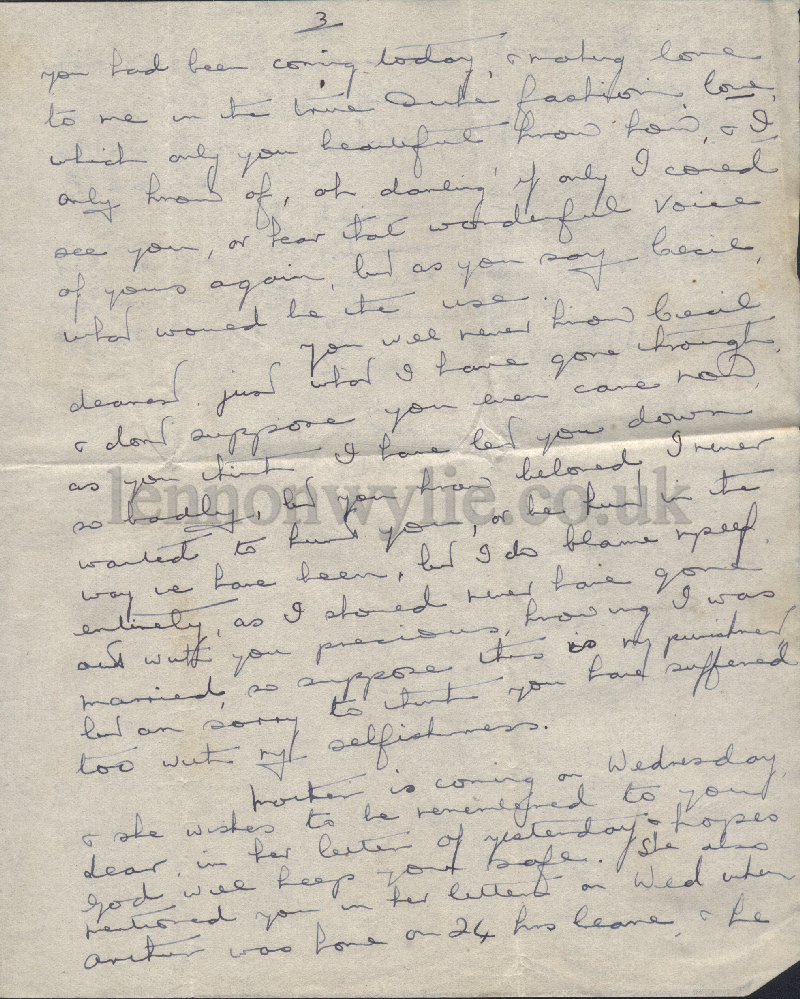 3
you had been coming today, & making love
to me in the true Duke fashion, love,
which only you beautiful know how, & I
only know of, oh darling, if only I could
see you, or hear that wonderful voice
of yours again, but as you say Cecil,
what would be the use.
you will never know Cecil
dearest just what I have gone through,
& dont suppose you even care now,
as you think I have let you down
so badly, but you know beloved I never
wanted to hurt you, or be hurt in the
way we have been, but I do blame myself
entirely, as I should never have gone
out with you precious, knowing I was
married, so suppose this is my punishment,
but am sorry to think you have suffered
too with my selfishness.
Mother is coming on Wednesday,
& she wishes to be remembered to you
dear, in her letter of yesterday & hopes
God will keep you safe. She also
mentioned you in her letter on Wed when
Arthur was home on 24 hrs leave, & he
lennonwylie.co.uk